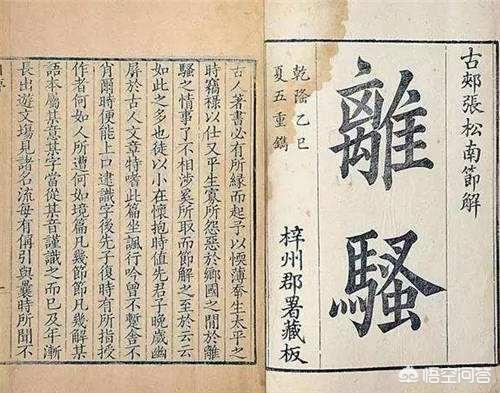 古郟張松南節解
離騷
乾隆乙巳
夏五重鐫
梓州郡署藏板
古人著書必有所緣而起予以愞薄幸生太平之
時竊祿以仕又平生寡所怨惡於鄉國之閒於離
騷之情事了不相涉奚所取而節解之至於云云
如此之多也徒以小在懷抱時值先君子晚歲幽
屏於古人文章特嗜此篇坐諷行吟曾不蹔舍不
肖爾時便能上口逮識字後先子復時有所指授
作者何如人所遭何如境篇凡幾節節凡幾解某
語本屬某意某字當從某音謹識之而已及年漸
長出遊文場見諸名流每有偁引與曩時所聞不
悟空问答